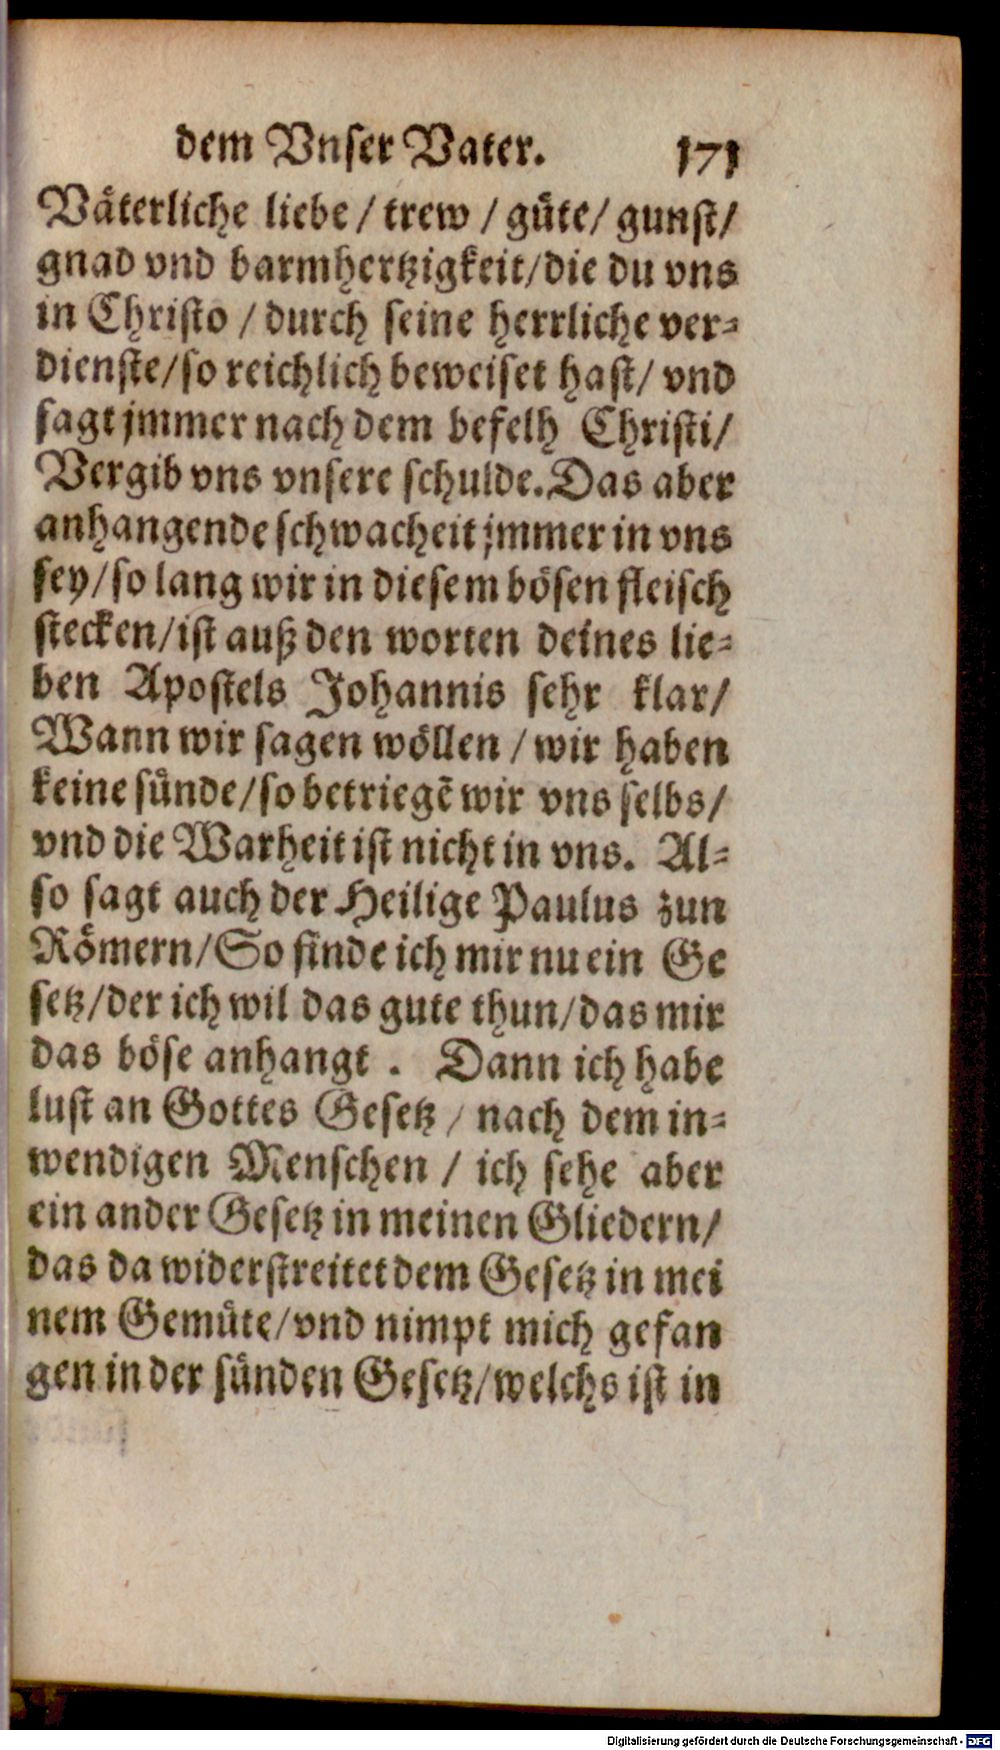 dem Vnser Vater. 171
Vaͤterliche liebe / trew / guͤte / gunst /
gnad vnd barmhertzigkeit / die du vns
in Christo / durch seine herrliche ver-
dienste / so reichlich beweiset hast / vnd
sagt jmmer nach dem befelh Christi /
Vergib vns vnsere schulde. Das aber
anhangende schwacheit jmmer in vns
sey / so lang wir in diesem boͤsen fleisch
stecken / ist auß den worten deines lie-
ben Apostels Johannis sehr klar /
Wann wir sagen woͤllen / wir haben
keine suͤnde / so betriegẽ wir vns selbs /
vnd die Warheit ist nicht in vns. Al-
so sagt auch der Heilige Paulus zun
Roͤmern / So finde ich mir nu ein Ge
setz / der ich wil das gute thun / das mir
das boͤse anhangt . Dann ich habe
lust an Gottes Gesetz / nach dem in-
wendigen Menschen / ich sehe aber
ein ander Gesetz in meinen Gliedern /
das da widerstreitet dem Gesetz in mei
nem Gemuͤte / vnd nimpt mich gefan
gen in der suͤnden Gesetz / welchs ist in
Digitalisierung gefördert durch die Deutsche Forschungsgemeinschaft - DFG